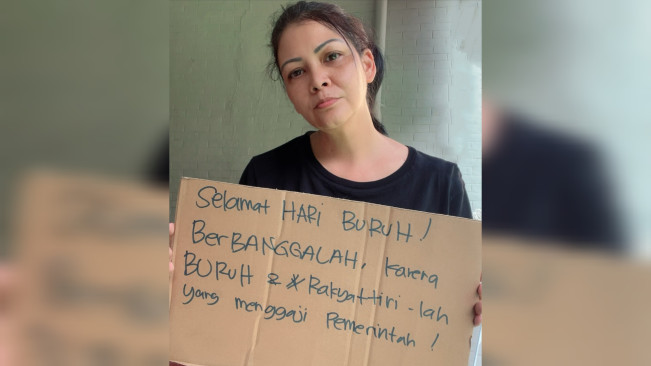 Selamat HARI BURUH!
BerBANGGALAH, karena
BURUH & *RakyatTiri-lah
yang menggaji Pemerintah!